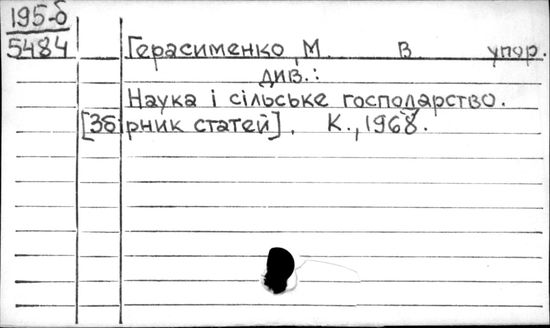 195-б
5484
Герасименко М. В упор.
див.:
Наука і сільське господарство.
[Збірник статей], К., 1968.